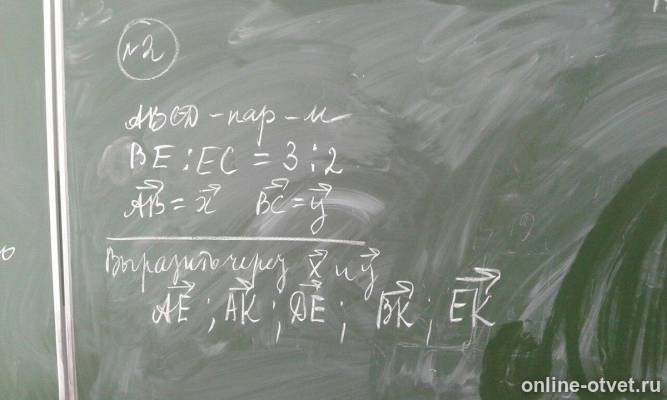 №2
ABCD - пар-м
BE : EC = 3 : 2
AB⃗ = x⃗  BC⃗ = y⃗
Выразить через x⃗ и y⃗
AE⃗ ; AK⃗ ; DE⃗ ; BK⃗ ; EK⃗
online-otvet.ru